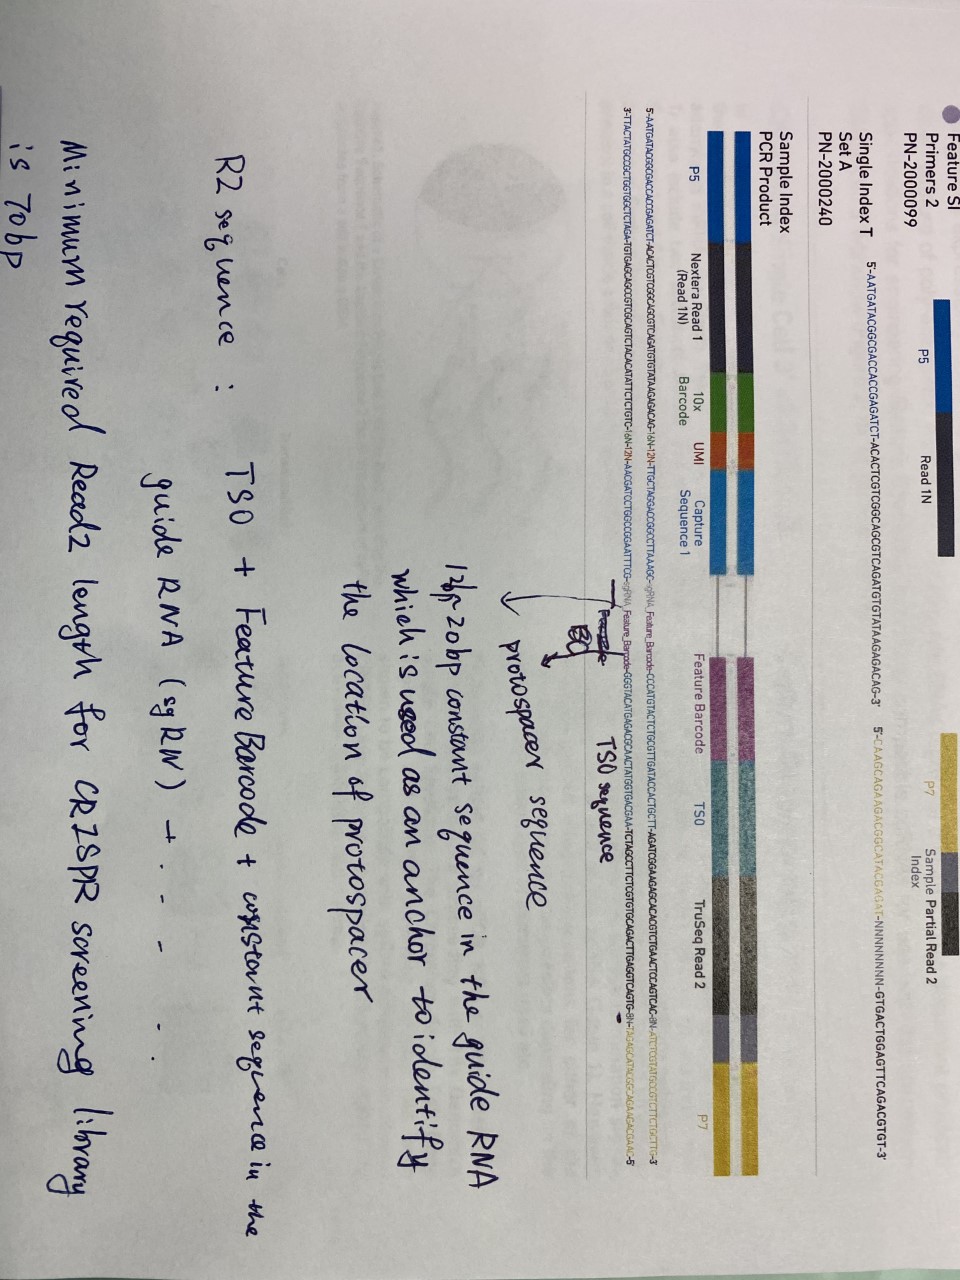 Feature SI
Primers 2
PN-2000099
P5
Read 1N
P7
Sample
Index
Partial Read 2
Single Index T
Set A
PN-2000240
5'-AATGATACGGCGACCACCGAGATCT-ACACTCGTCGGCAGCGTCAGATGTGTATAAGAGACAG-3'
5'-CAAGCAGAAGACGGCATACGAGAT-NNNNNNNN-GTGACTGGAGTTCAGACGTGT-3'
Sample Index
PCR Product
P5
Nextera Read 1
(Read 1N)
10x
Barcode
UMI
Capture
Sequence 1
Feature Barcode
TSO
TruSeq Read 2
P7
5'-AATGATACGGCGACCACCGAGATCT-ACACTCGTCGGCAGCGTCAGATGTGTATAAGAGACAG-16N-12N-TTGCTAGGACCGGCCTTAAAGC-sgRNA_Feature_Barcode-CCCATGTACTCTGCGTTGATACCACTGCTT-AGATCGGAAGAGCACACGTCTGAACTCCAGTCAC-8N-ATCTCGTATGCCGTCTTCTGCTTG-3'
3'-TTACTATGCCGCTGGTGGCTCTAGA-TGTGAGCAGCCGTCGCAGTCTACACATATTCTCTGTC-16N-12N-AACGATCCTGGCCGGAATTTCG-sgRNA_Feature_Barcode-GGGTACATGAGACGCAACTATGGTGACGAA-TCTAGCCTTCTCGTGTGCAGACTTGAGGTCAGTG-8N-TAGAGCATACGGCAGAAGACGAAC-5'
TSO sequence
protospacer sequence
12bp-20bp constant sequence in the guide RNA
which is used as an anchor to identify
the location of protospacer
R2 sequence : TSO + Feature Barcode + constant sequence in the
guide RNA (sgRN) + . . . . .
Minimum required Read2 length for CRISPR screening library
is 70bp